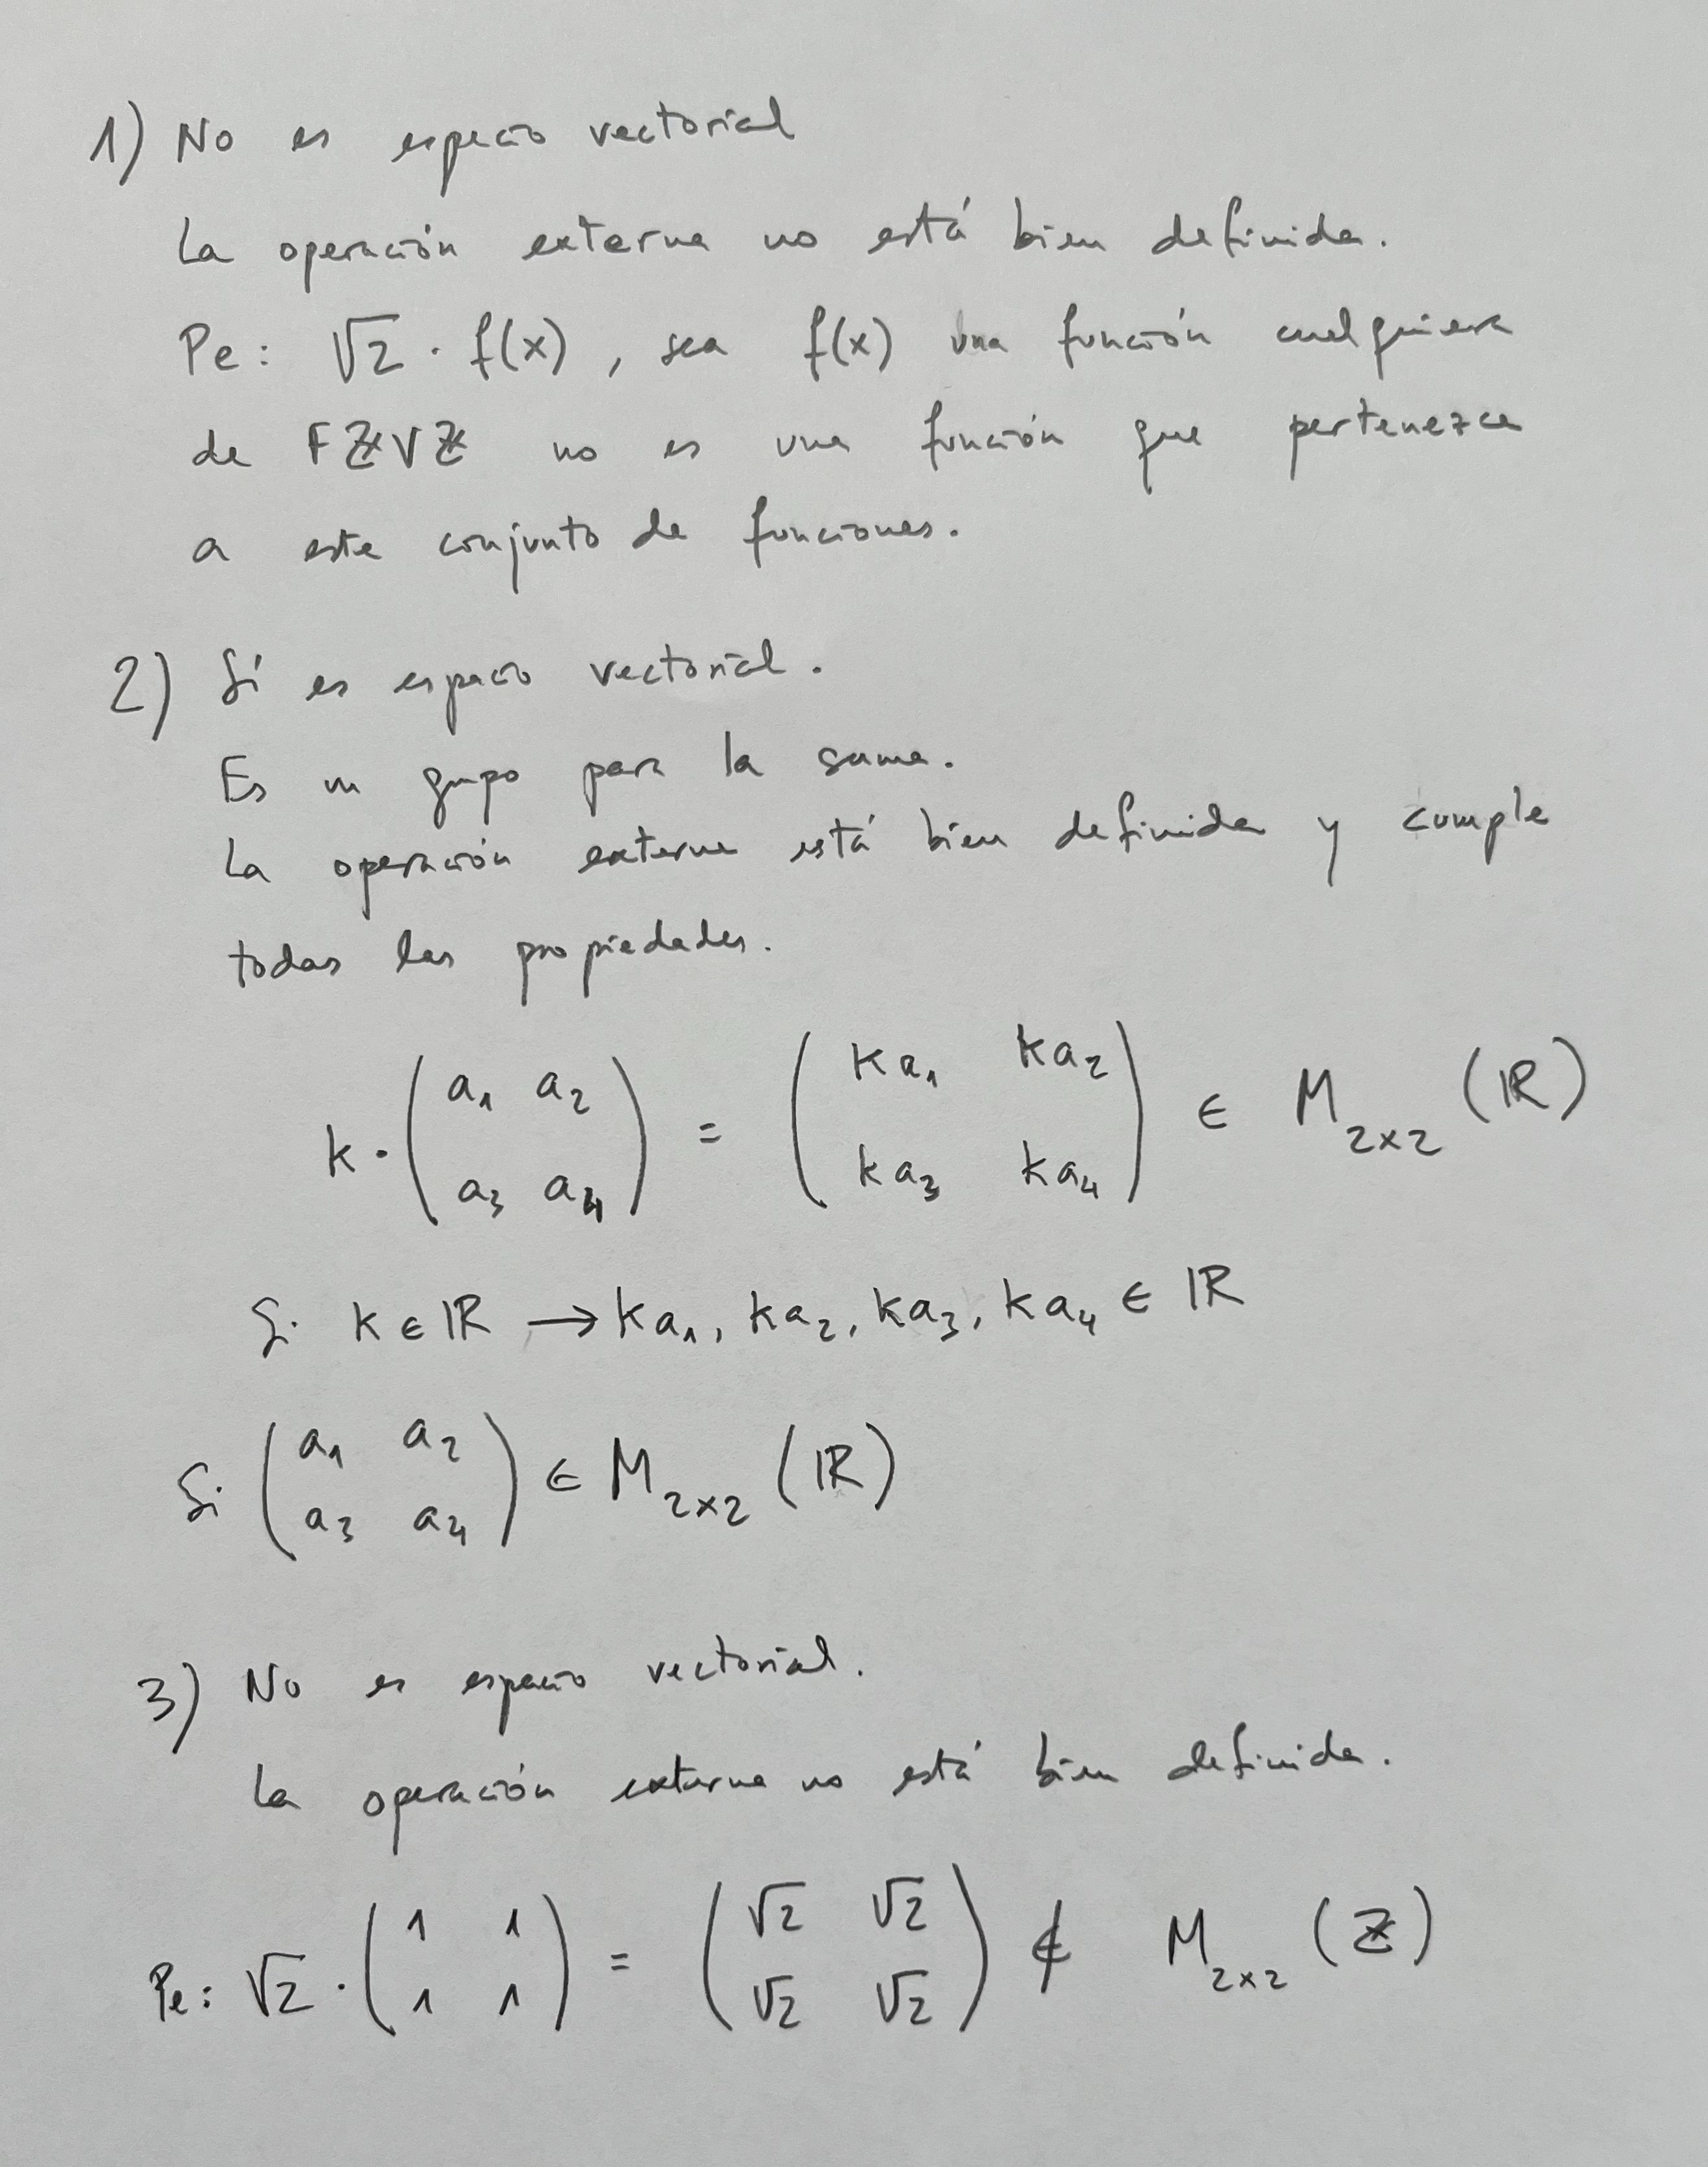 1) No es espacio vectorial
La operación externa no está bien definida.
Pe: √2 · f(x), sea f(x) una función cualquiera
de FℤVℤ no es una función que pertenezca
a este conjunto de funciones.
2) Sí es espacio vectorial.
Es un grupo para la suma.
La operación externa está bien definida y cumple
todas las propiedades.
k · ( a₁ a₂ ; a₃ a₄ ) = ( ka₁ ka₂ ; ka₃ ka₄ ) ∈ M₂ₓ₂ (ℝ)
Si k ∈ ℝ → ka₁, ka₂, ka₃, ka₄ ∈ ℝ
Si ( a₁ a₂ ; a₃ a₄ ) ∈ M₂ₓ₂ (ℝ)
3) No es espacio vectorial.
La operación externa no está bien definida.
Pe: √2 · ( 1 1 ; 1 1 ) = ( √2 √2 ; √2 √2 ) ∉ M₂ₓ₂ (ℤ)